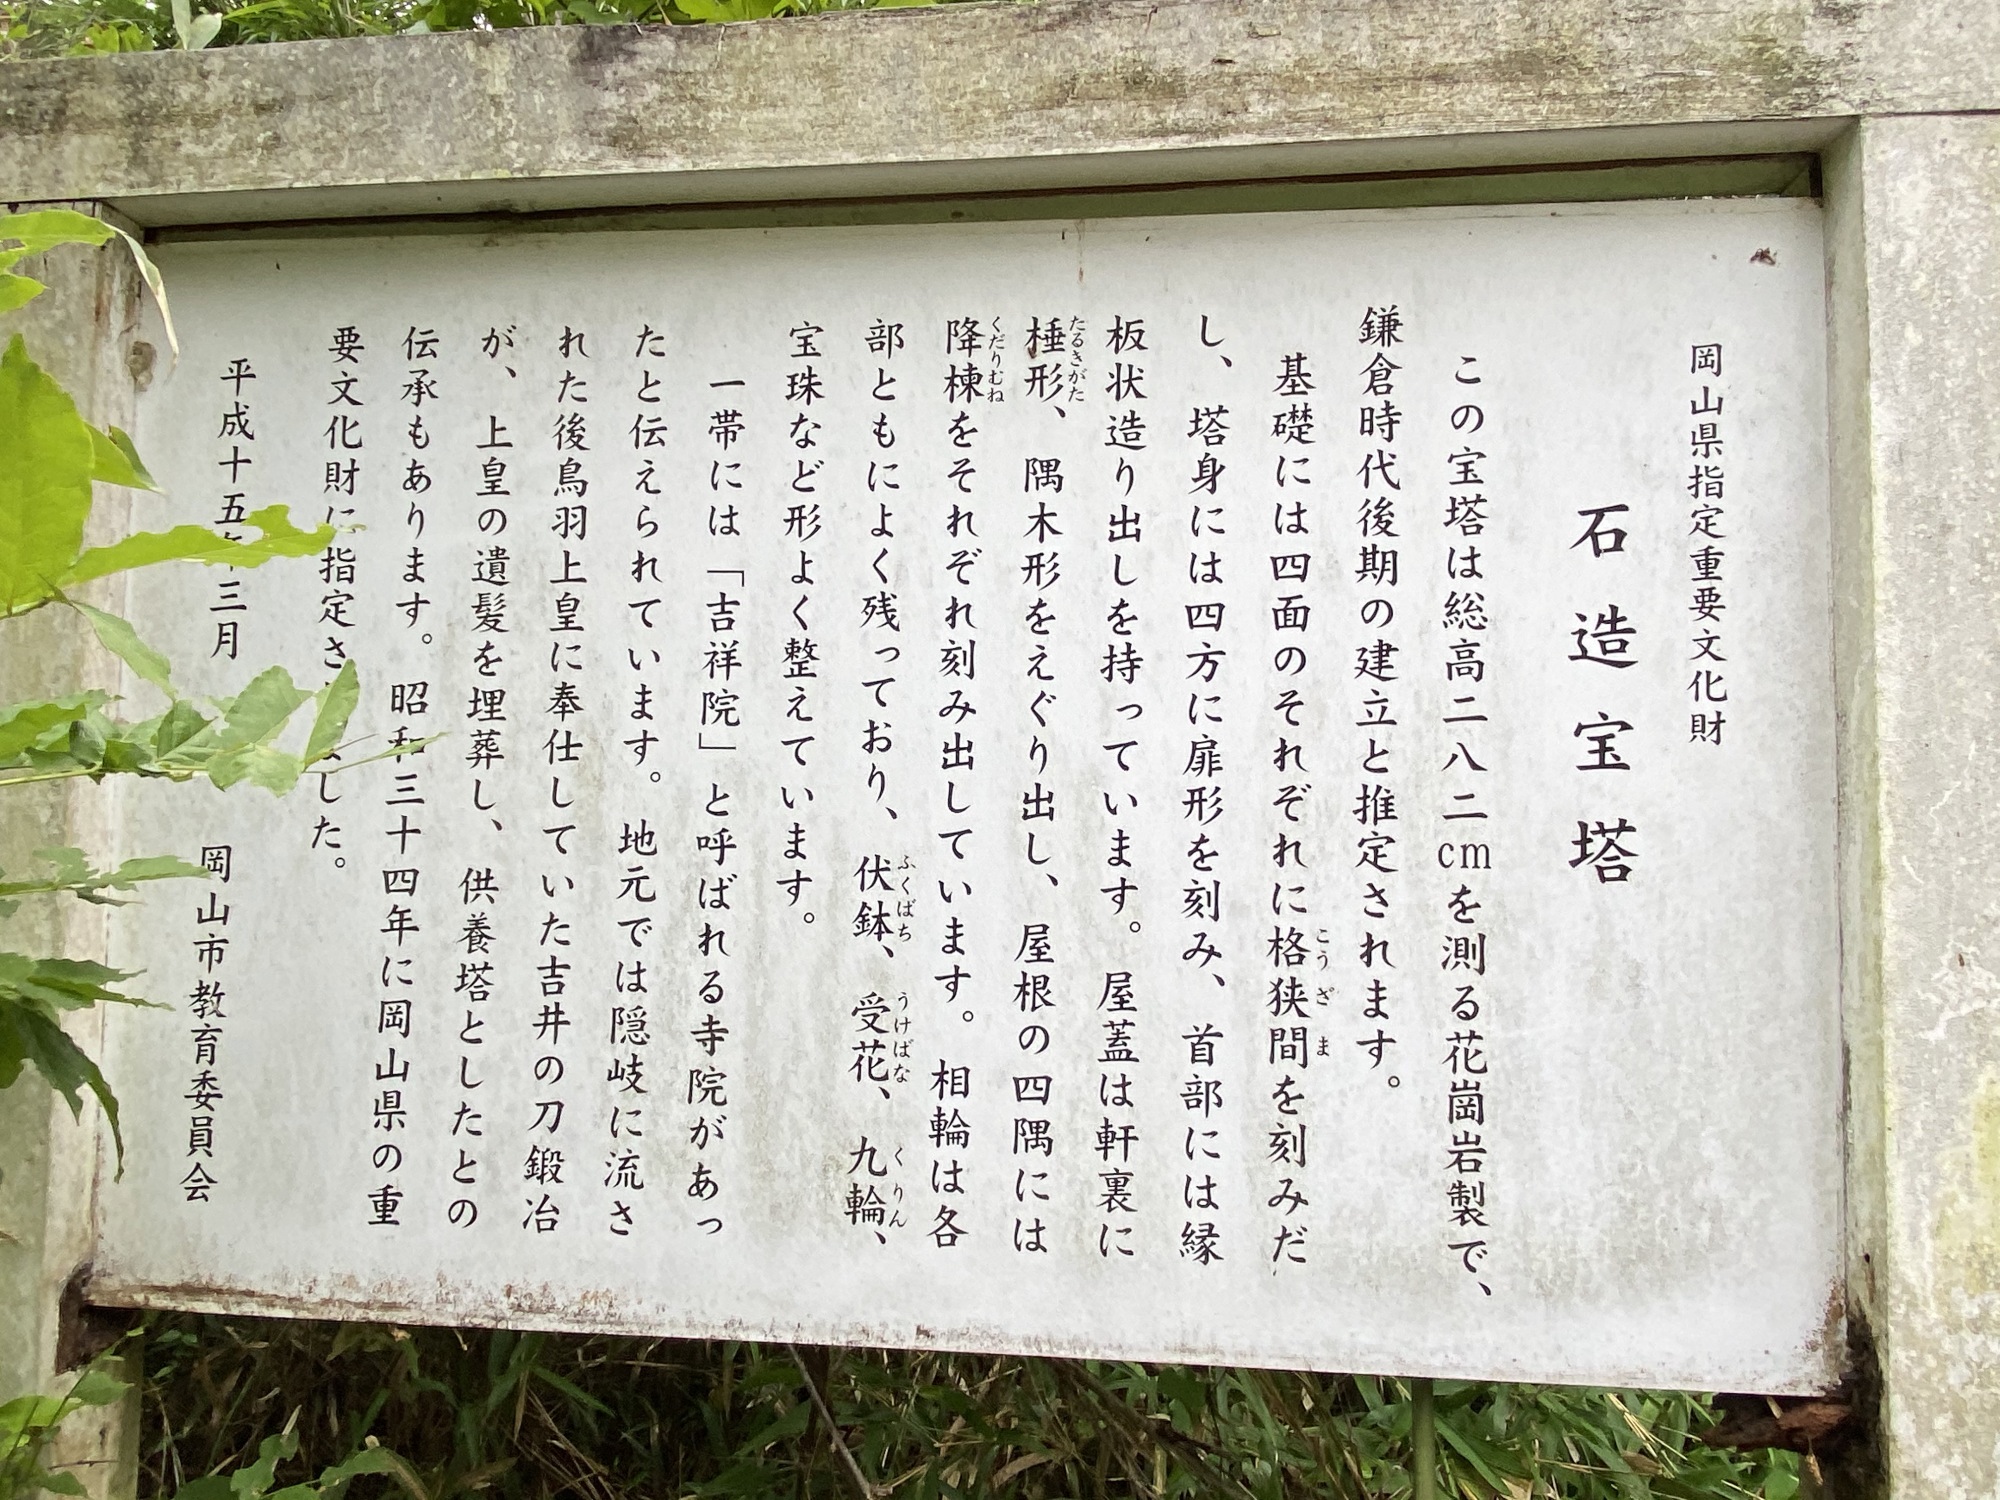 岡山県指定重要文化財
石造宝塔
この宝塔は総高二八二cmを測る花崗岩製で、
鎌倉時代後期の建立と推定されます。
基礎には四面のそれぞれに格狭間を刻みだ
し、塔身には四方に扉形を刻み、首部には縁
板状造り出しを持っています。屋蓋は軒裏に
棰形、隅木形をえぐり出し、屋根の四隅には
降棟をそれぞれ刻み出しています。相輪は各
部ともによく残っており、伏鉢、受花、九輪、
宝珠など形よく整えています。
一帯には「吉祥院」と呼ばれる寺院があっ
たと伝えられています。地元では隠岐に流さ
れた後鳥羽上皇に奉仕していた吉井の刀鍛冶
が、上皇の遺髪を埋葬し、供養塔としたとの
伝承もあります。昭和三十四年に岡山県の重
要文化財に指定されました。
平成十五年三月 岡山市教育委員会